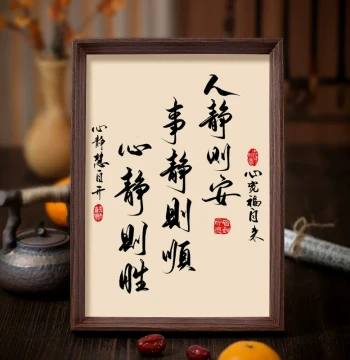 心宽福自来
人静则安
事静則順
心静则胜
心静慧自开